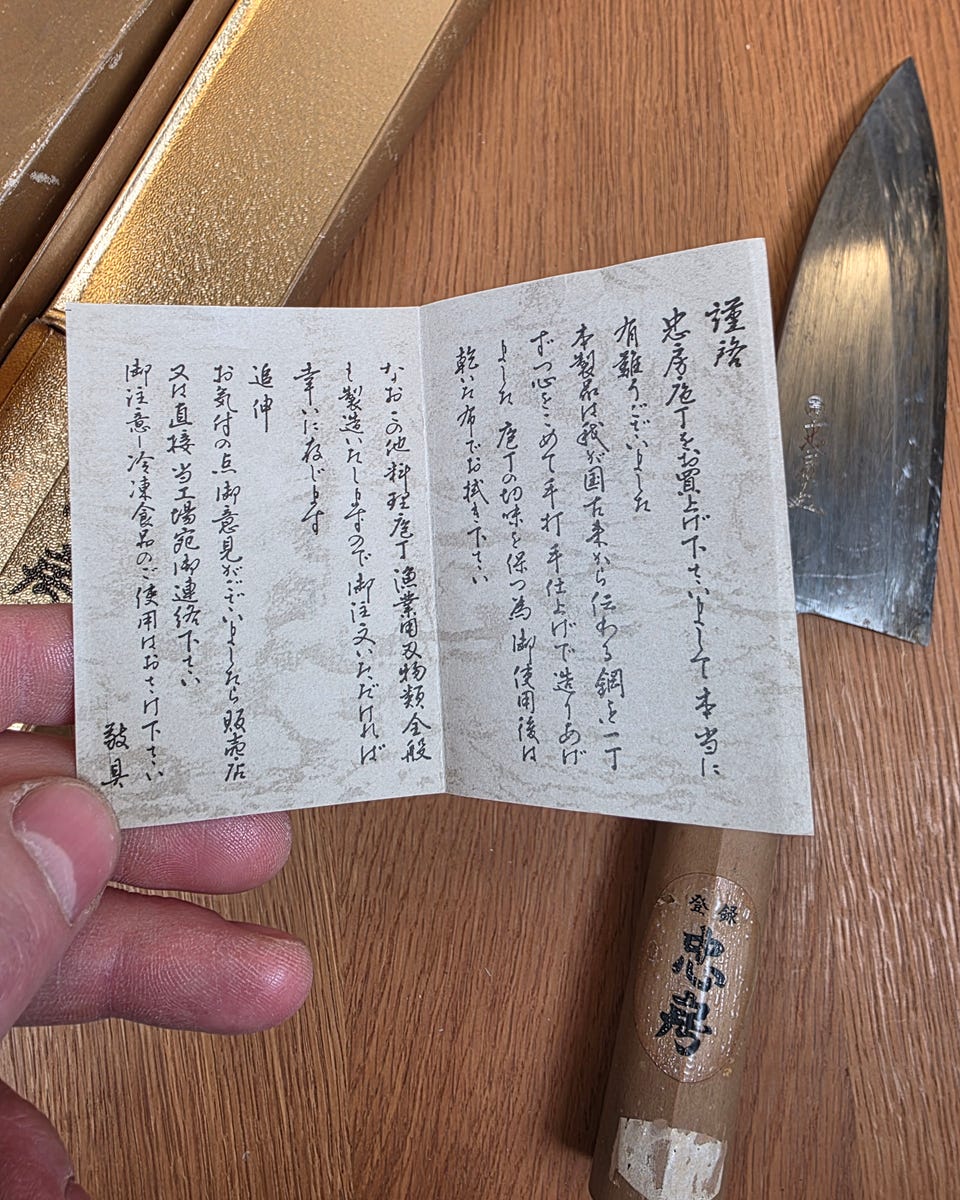 謹啓
忠房庖丁をお買上げ下さいまして本当に
有難うございました
本製品は我が国古来から伝わる鋼を一丁
ずつ心をこめて手打手仕上げで造りあげ
ました 庖丁の切味を保つ為御使用後は
乾いた布でお拭き下さい
なおこの他料理庖丁漁業用刃物類全般
も製造いたしますので御注文いただければ
幸いに存じます
追伸
お気付の点御意見がございましたら販売店
又は直接当工場宛御連絡下さい
御注意―冷凍食品のご使用はおさけ下さい
敬具
登録
忠房